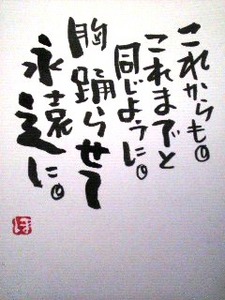 これからも。
これまでと
同じように。
胸踊らせて
永遠に。
ほ